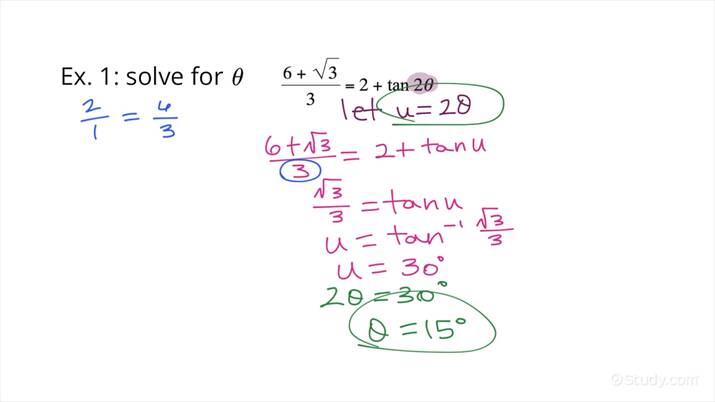 Ex. 1: solve for θ
(6 + √3)/3 = 2 + tan 2θ
let u = 2θ
2/1 = 6/3
(6 + √3)/3 = 2 + tan u
√3/3 = tan u
u = tan⁻¹ √3/3
u = 30°
2θ = 30°
θ = 15°
©Study.com